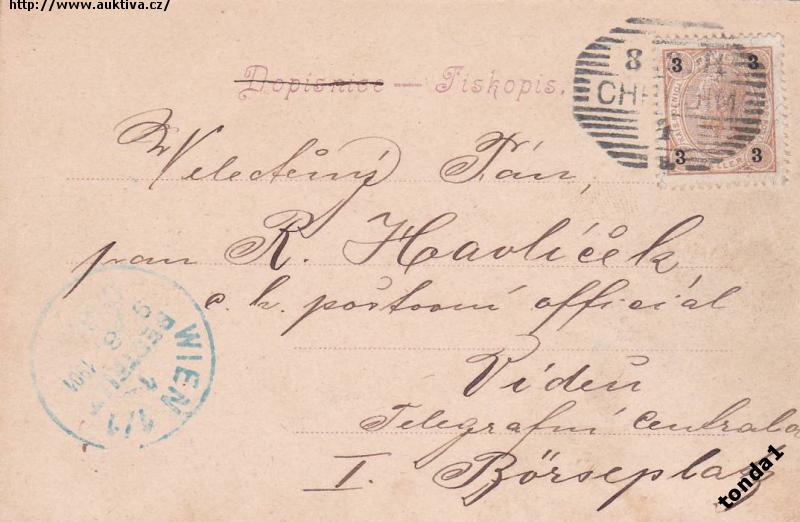 http://www.auktiva.cz/
Dopisnice — Tiskopis.
3 3
3 3
8
CHRUDIM
Velectěný Pán,
pan R. Havlíček
c. k. poštovní official
Vídeň
Telegrafní centrala
I. Börseplatz
WIEN 1/1
BESTELLT
9
8
1901
tonda1